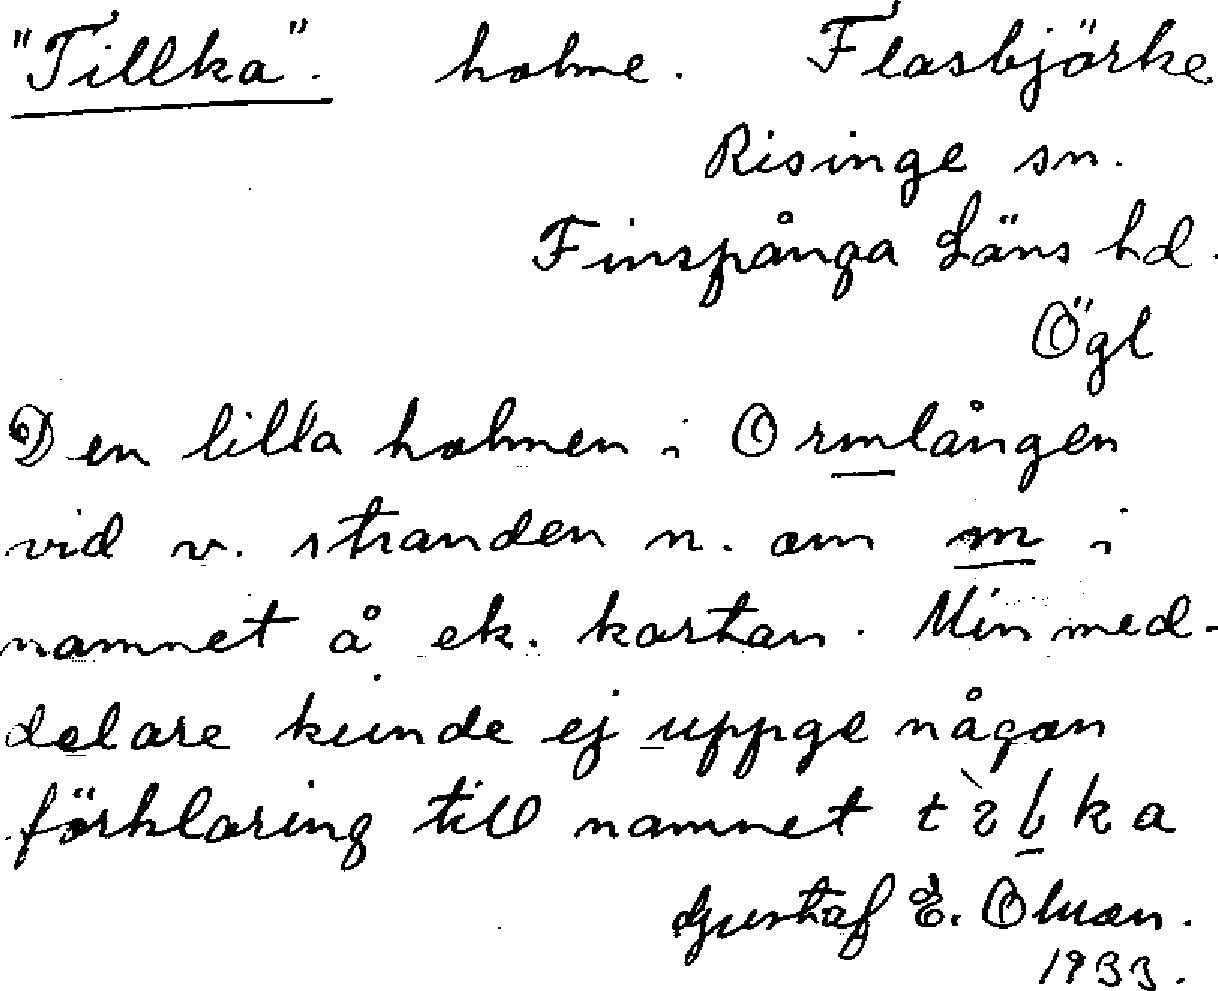 "Tillka". holme. Flasbjörke
Risinge sn.
Finspånga Läns hd.
Ögl
Den lilla holmen i Ormlången
vid v. stranden n. om m i
namnet å ek. kartan. Min med-
delare kunde ej uppge någon
förklaring till namnet
Gustaf E. Olsson.
1933.